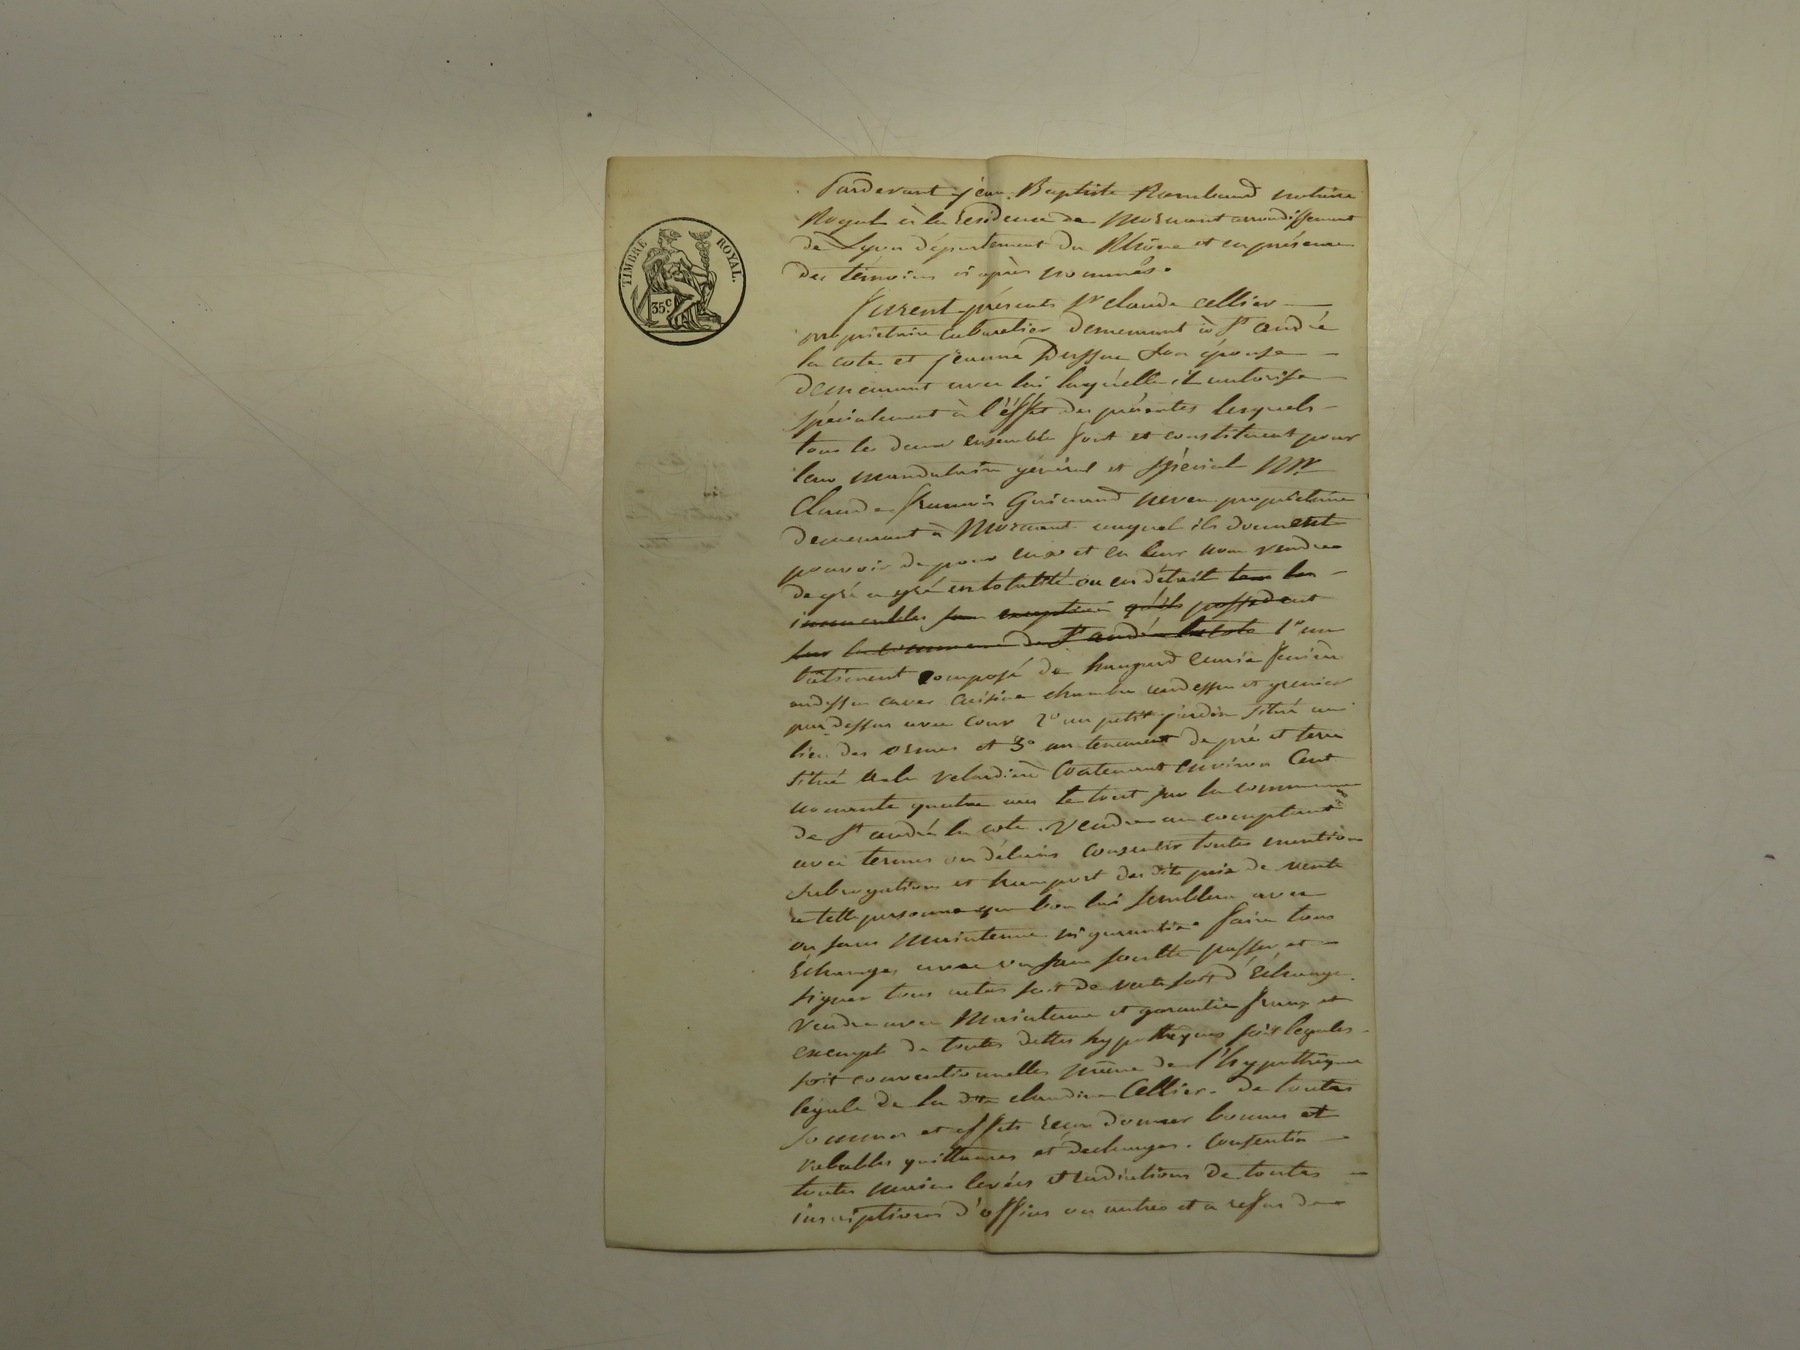 TIMBRE ROYAL.
35 c.
Pardevant jean Baptiste Rambaud notaire
Royal à la Residence de Mornant arrondissement
de Lyon département du Rhône et en présence
des témoins ci après nommés.
furent présents Sr claude cellier
propriétaire cabaretier demeurant à St andré
la cote et jeanne son épouse
demeurant avec lui laquelle il autorise
spécialement à l'éffet des présentes lesquels
tous les deux ensemble font et constituent pour
leur mandataire général et spécial Mr
Claude francois Guinand neveu propriétaire
demeurant à Mornant auquel ils donnent
pouvoir de pour eux et en leur nom vendre
de gré a gré en totalité ou en détail tous les
immeubles sans exception qu'ils possedent
sur la commune de St andré la cote 1º un
bâtiment composé de hangard écurie feniere
audessus caves cuisine chambre audessus et grenier
par dessus avec cour 2º un petit jardin situé au
lieu des ormes et 3º un tenement de pré et terre
situé a la contenant environ Cent
nonante quatre ares le tout sur la commune
de St andré la cote. Vendre au comptant
avec termes ou délais consentir toutes mentions
subrogations et transport des dits prix de vente
a telle personne que bon lui semblera avec
ou sans maintenue ni garantie faire tous
échanges avec ou sans soulte passer et
signer tous actes soit de vente soit d'échange.
Vendre avec Maintenue et garantie franc et
exempt de toutes dettes hypotheques soit legales
soit conventionnelles même de l'hypothèque
légale de la dite claudine Cellier. de toutes
sommes et effets reçus donner bonnes et
valables quittances et decharges. Consentir
toutes mains levées et radiations de toutes
inscriptions d'office ou autres et a refus de